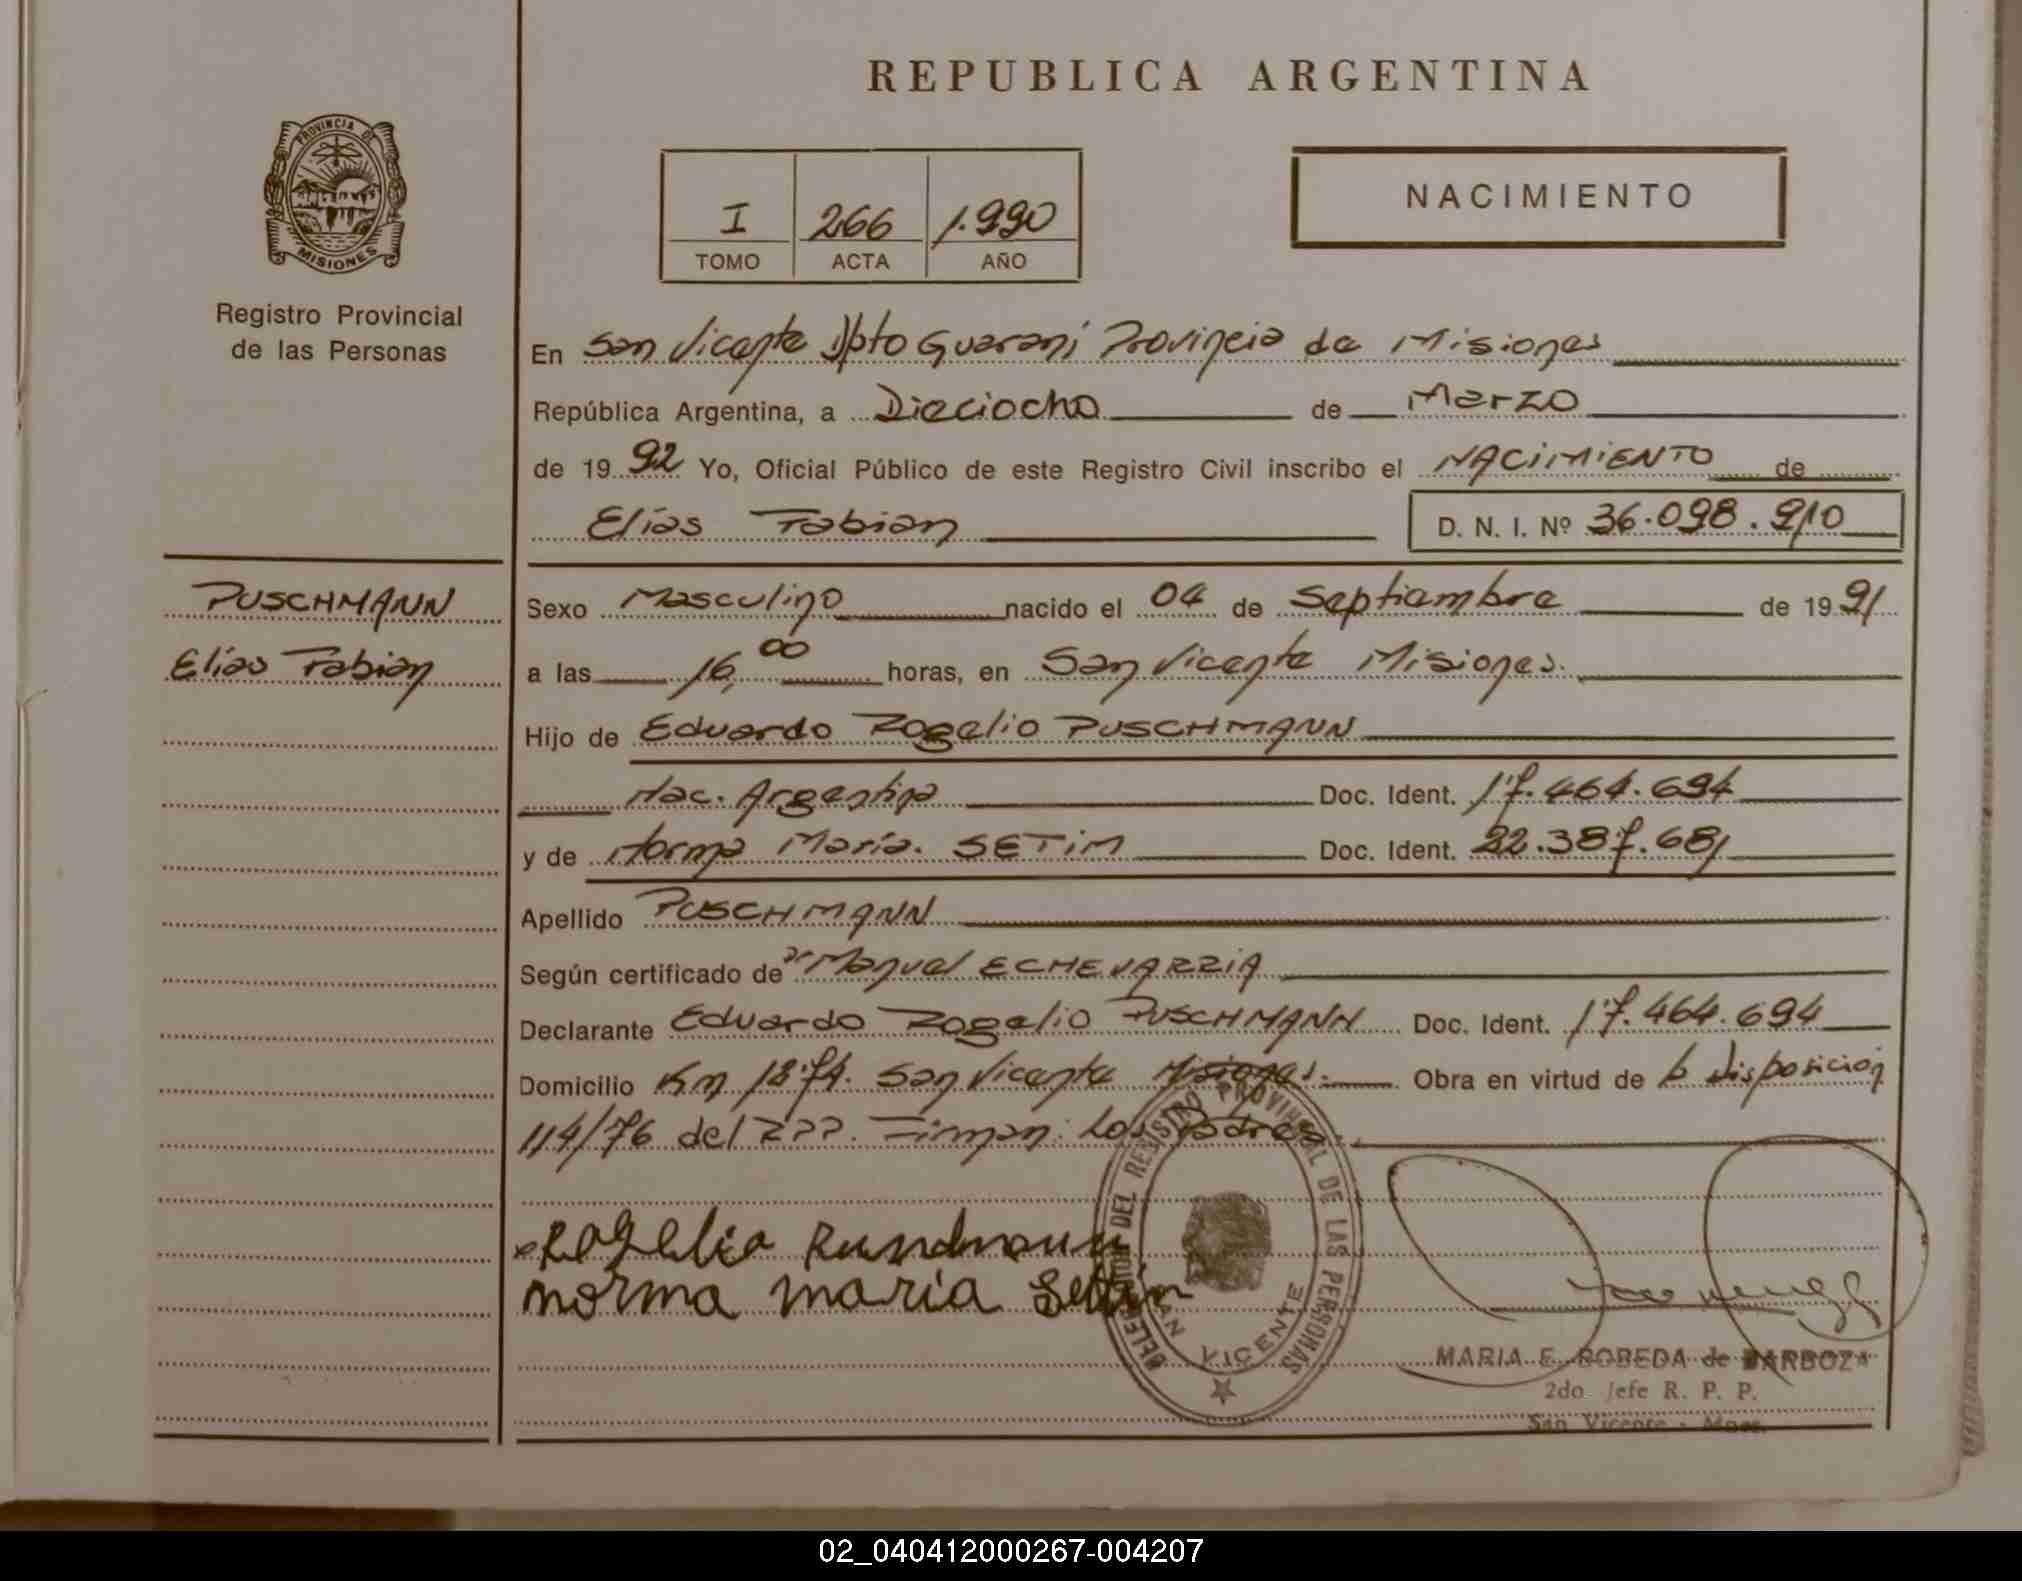 REPUBLICA ARGENTINA
PROVINCIA DE
MISIONES
Registro Provincial
de las Personas
I 266 1.990
TOMO ACTA AÑO
NACIMIENTO
En San Vicente Dpto Guaraní Provincia de Misiones
República Argentina, a Dieciocho de Marzo
de 1992 Yo, Oficial Público de este Registro Civil inscribo el NACIMIENTO de
Elías Fabian D. N. I. Nº 36.098.910
PUSCHMANN
Elías Fabian
Sexo Masculino nacido el 04 de Septiembre de 1991
a las 16,00 horas, en San Vicente Misiones.
Hijo de Eduardo Rogelio PUSCHMANN
Nac. Argentina Doc. Ident. 17.464.694
y de Norma María. SETIM Doc. Ident. 22.387.681
Apellido PUSCHMANN
Según certificado de Dr Manuel ECHEVARRIA
Declarante Eduardo Rogelio PUSCHMANN Doc. Ident. 17.464.694
Domicilio Km 1274. San Vicente Misiones. Obra en virtud de la Disposición
114/76 del RPP. Firman: Los Padres.
Rogelio
norma maria Setim
DELEGACION DEL REGISTRO PROVINCIAL DE LAS PERSONAS
SAN VICENTE
MARIA E. BOBEDA de BARBOZA
2do. Jefe R. P. P.
San Vicente - Mnes.
02_040412000267-004207